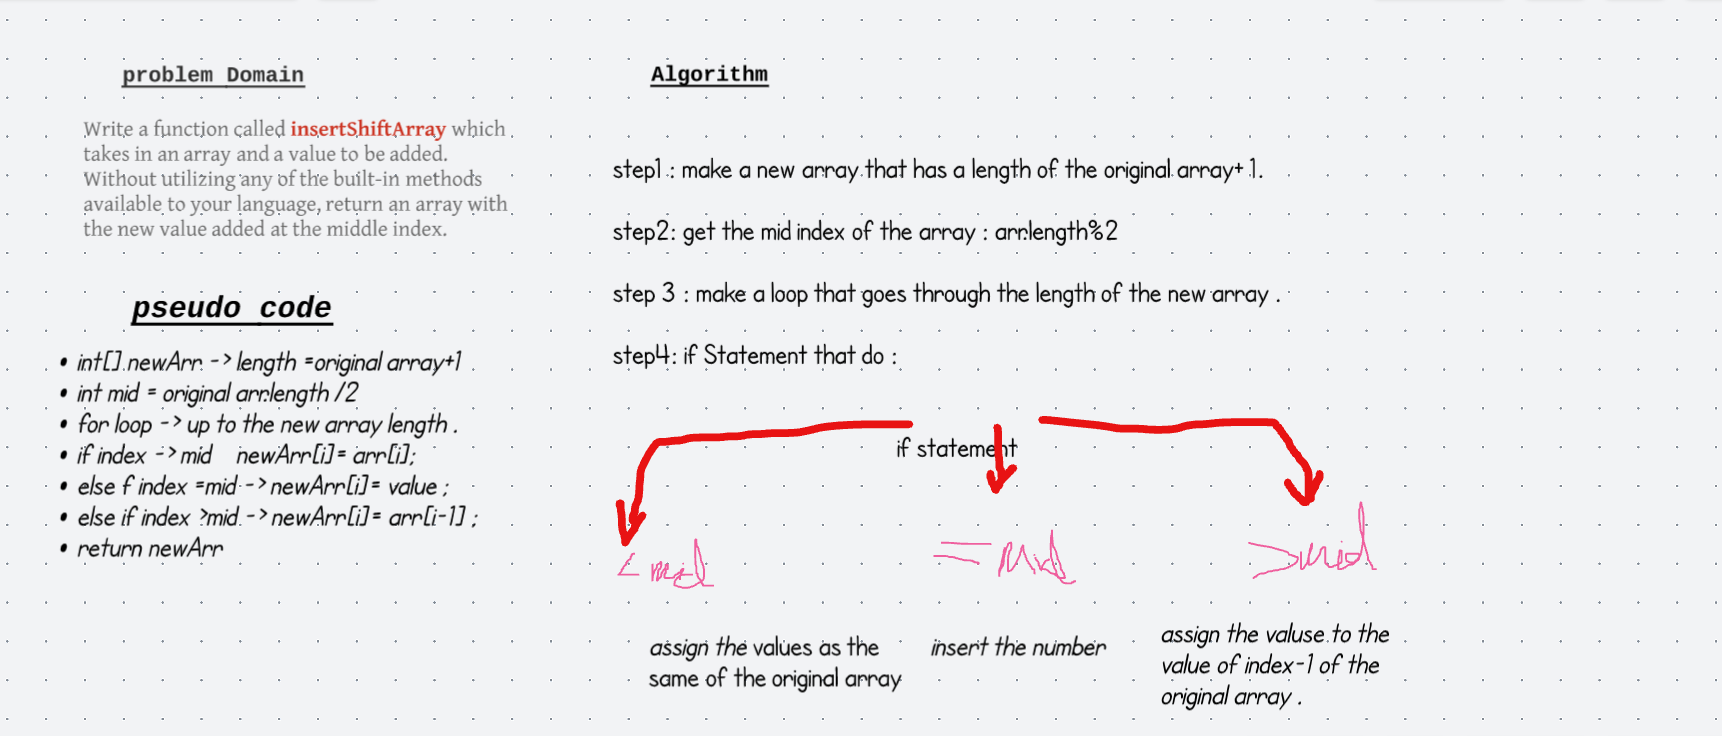 problem Domain
Write a function called insertShiftArray which
takes in an array and a value to be added.
Without utilizing any of the built-in methods
available to your language, return an array with
the new value added at the middle index.
pseudo code
• int[] newArr -> length =original array+1
• int mid = original arr.length /2
• for loop -> up to the new array length .
• if index -> mid newArr[i]= arr[i];
• else f index =mid -> newArr[i]= value ;
• else if index >mid -> newArr[i]= arr[i-1] ;
• return newArr
Algorithm
step1 : make a new array that has a length of the original array+ 1.
step2: get the mid index of the array : arr.length%2
step 3 : make a loop that goes through the length of the new array .
step4: if Statement that do :
if statement
< mid
= Mid
>mid
assign the values as the
same of the original array
insert the number
assign the valuse to the
value of index-1 of the
original array .